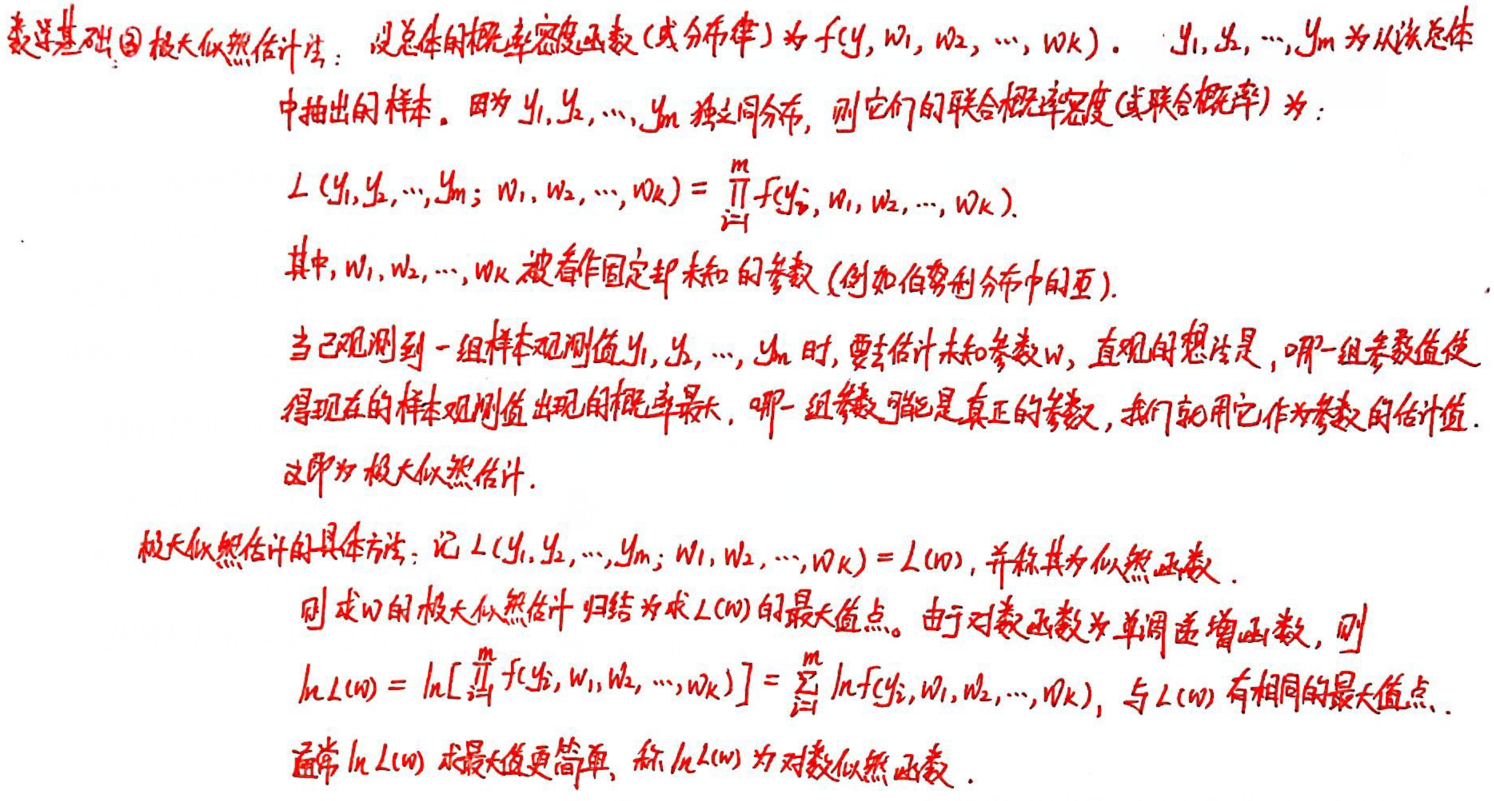 数学基础③极大似然估计法：设总体的概率密度函数（或分布律）为 f(y, w₁, w₂, …, wₖ)． y₁, y₂, …, yₘ 为从该总体
中抽出的样本。因为 y₁, y₂, …, yₘ 独立同分布，则它们的联合概率密度（或联合概率）为：
L (y₁, y₂, …, yₘ; w₁, w₂, …, wₖ) = ∏ᵢ₌₁ᵐ f(yᵢ, w₁, w₂, …, wₖ).
其中，w₁, w₂, …, wₖ 被看作固定却未知的参数（例如伯努利分布中的π）.
当已观测到一组样本观测值 y₁, y₂, …, yₘ 时，要去估计未知参数w，直观的想法是，哪一组参数值使
得现在的样本观测值出现的概率最大，哪一组参数可能是真正的参数，我们就用它作为参数的估计值.
这即为极大似然估计.
极大似然估计的具体方法：记 L(y₁, y₂, …, yₘ; w₁, w₂, …, wₖ) = L(w)，并称其为似然函数.
则求w的极大似然估计归结为求L(w)的最大值点。由于对数函数为单调递增函数，则
ln L(w) = ln[∏ᵢ₌₁ᵐ f(yᵢ, w₁, w₂, …, wₖ)] = ∑ᵢ₌₁ᵐ ln f(yᵢ, w₁, w₂, …, wₖ)，与L(w)有相同的最大值点.
通常 ln L(w) 求最大值更简单，称 ln L(w) 为对数似然函数.